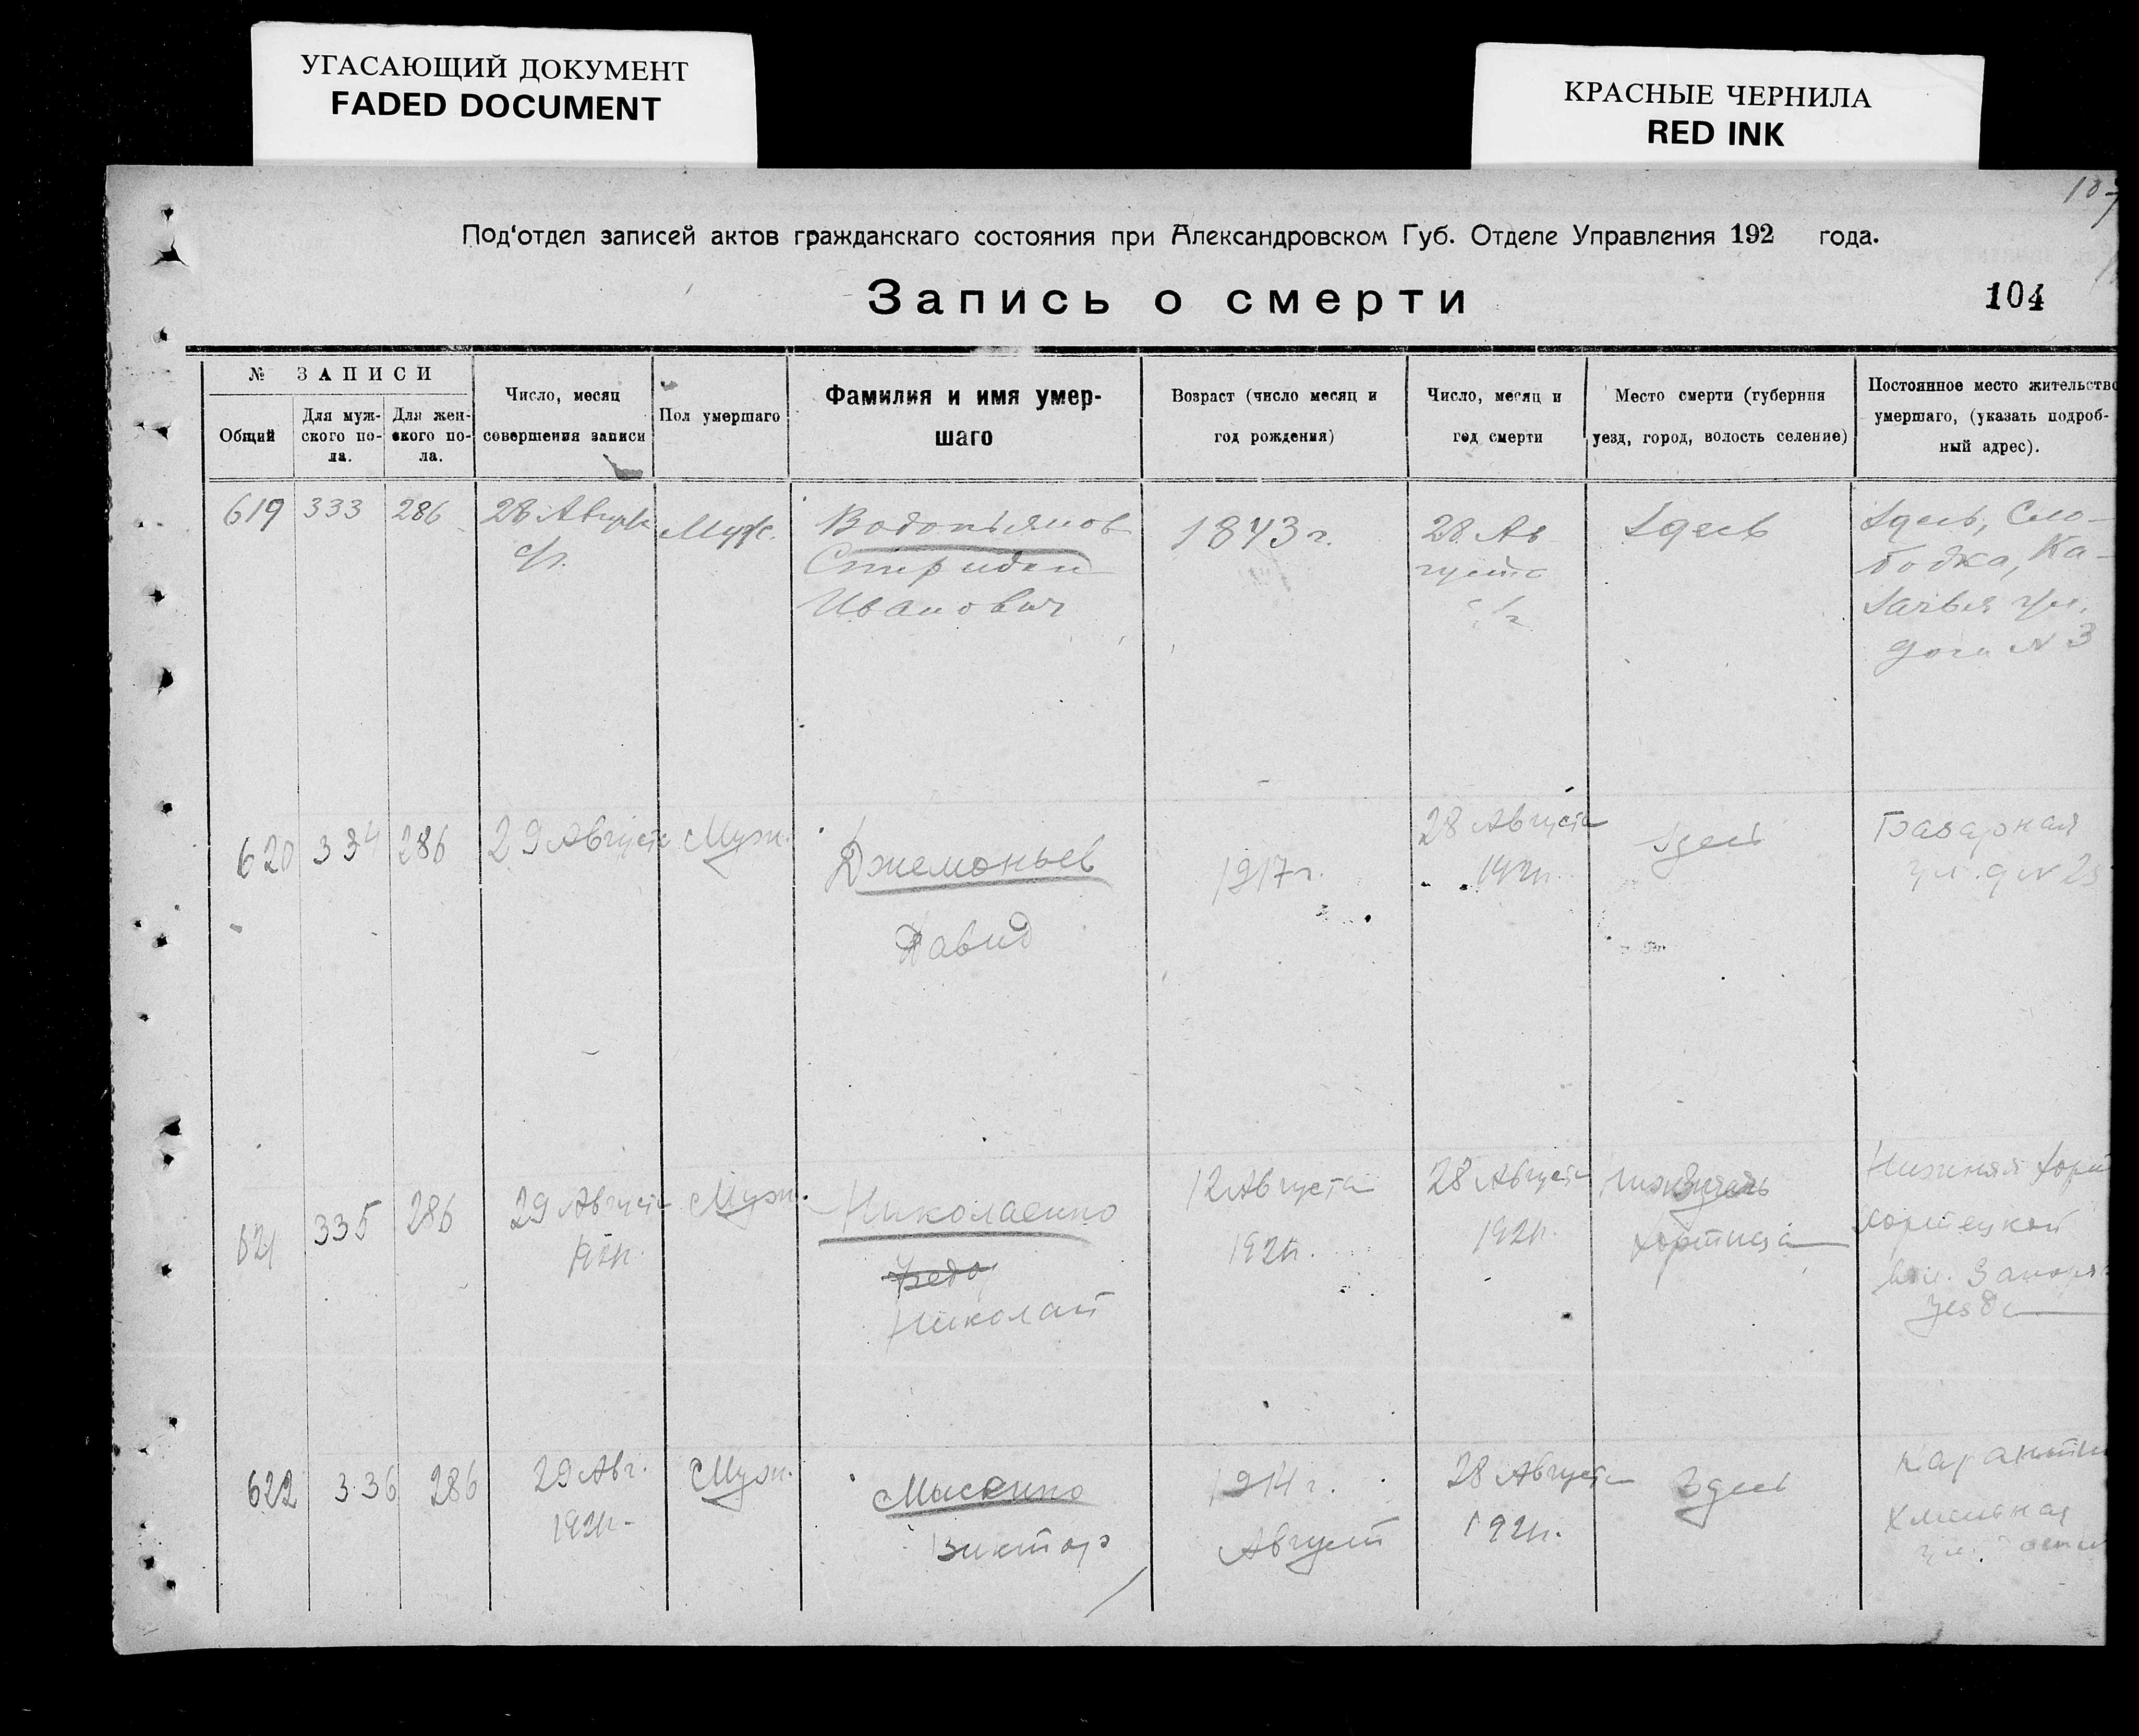 УГАСАЮЩИЙ ДОКУМЕНТ
FADED DOCUMENT
КРАСНЫЕ ЧЕРНИЛА
RED INK
Под‘отдел записей актов гражданскаго состояния при Александровском Губ. Отделе Управления 192 года.
Запись о смерти
104
№ ЗАПИСИ
Общий
Для муж-
ского по-
ла.
Для жен-
ского по-
ла.
Число, месяц
совершения записи
Пол умершаго
Фамилия и имя умер-
шаго
Возраст (число месяц и
год рождения)
Число, месяц и
год смерти
Место смерти (губерния
уезд, город, волость селение)
Постоянное место жительство
умершаго, (указать подроб-
ный адрес).
619
333
286
28 Августа
с/г.
Муж.
Водопьянов
Спиридон
Иванович
1843 г.
28 Ав-
густа
с/г
Здесь
Здесь, Сло-
бодка, Ка-
зачья ул.
дом № 3
620
334
286
29 Августа
Муж.
Джемоньев
Давид
1917 г.
28 Августа
192 г.
Здесь
Базарная
ул. д № 23
621
335
286
29 Августа
Муж.
Николаенко
Федор
Николай
12 Августа
28 Августа
Хортица
Нижняя Хорт
Хортецкой
вол. Запорож
уезда
622
336
286
29 Авг.
Муж.
Виктор
1914 г.
Август
28 Августа
Здесь
Карантин
Хмельная
ул.